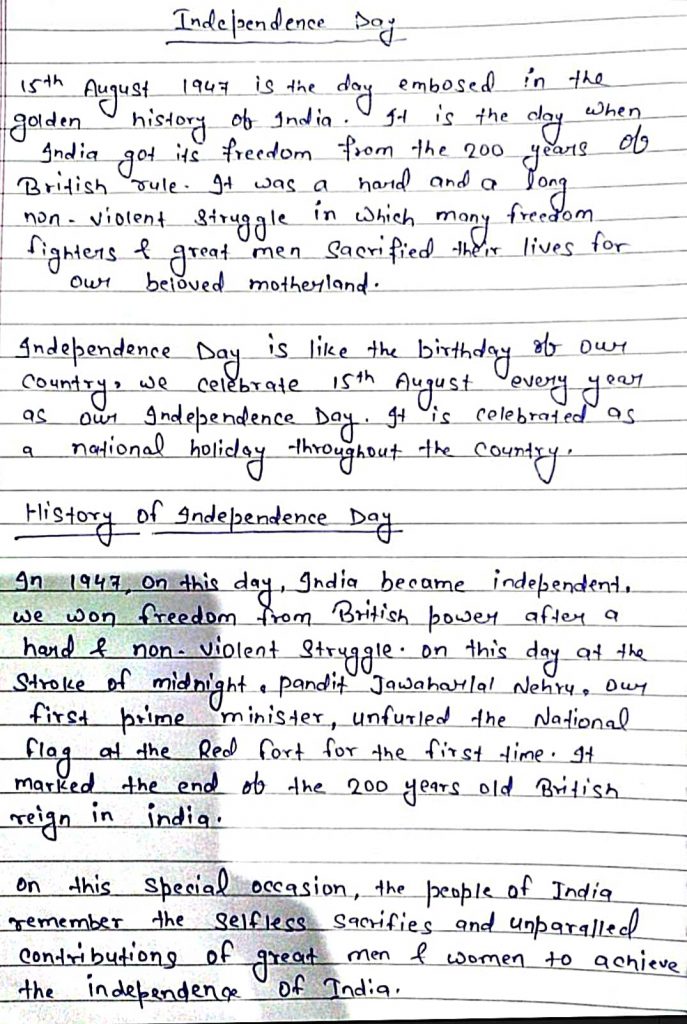 Independence Day
15th August 1947 is the day embosed in the
golden history of India. It is the day when
India got its freedom from the 200 years of
British rule. It was a hard and a long
non-violent struggle in which many freedom
fighters & great men sacrified their lives for
our beloved motherland.
Independence Day is like the birthday of our
country, we celebrate 15th August every year
as our Independence Day. It is celebrated as
a national holiday throughout the country.
History of Independence Day
In 1947, on this day, India became independent.
we won freedom from British power after a
hard & non-violent struggle. on this day at the
stroke of midnight, pandit Jawaharlal Nehru, our
first prime minister, unfurled the National
flag at the Red fort for the first time. It
marked the end of the 200 years old British
reign in india.
on this special occasion, the people of India
remember the selfless sacrifies and unparalled
contributions of great men & women to achieve
the independence of India.